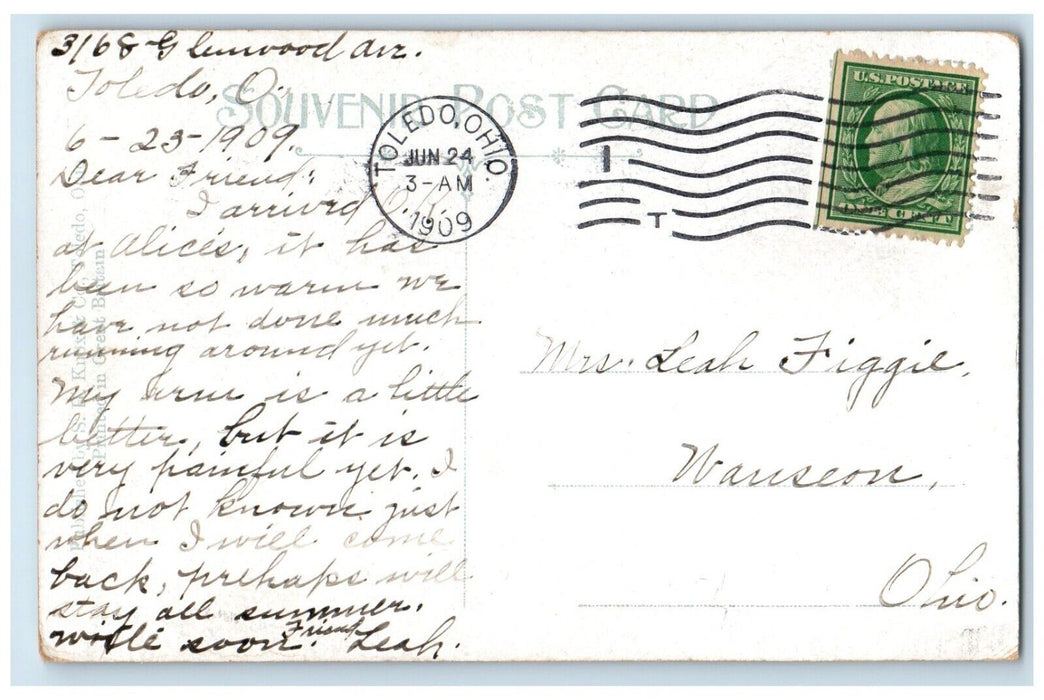 3168 Glenwood Ave.
Toledo, O.
6-23-1909.
Dear Friend:
I arrived
at Alice's, it has
been so warm we
have not done much
running around yet.
My arm is a little
better, but it is
very painful yet. I
do not known just
when I will come
back, prehaps will
stay all summer.
write soon. Friend Leah.
SOUVENIR POST CARD
TOLEDO, OHIO.
JUN 24
3-AM
1909
I
T
U.S. POSTAGE
ONE CENT
Mrs. Leah Figgie,
Wauseon,
Ohio.
Published by S. H. Knox & Co., Toledo, O.
Printed in Great Britain